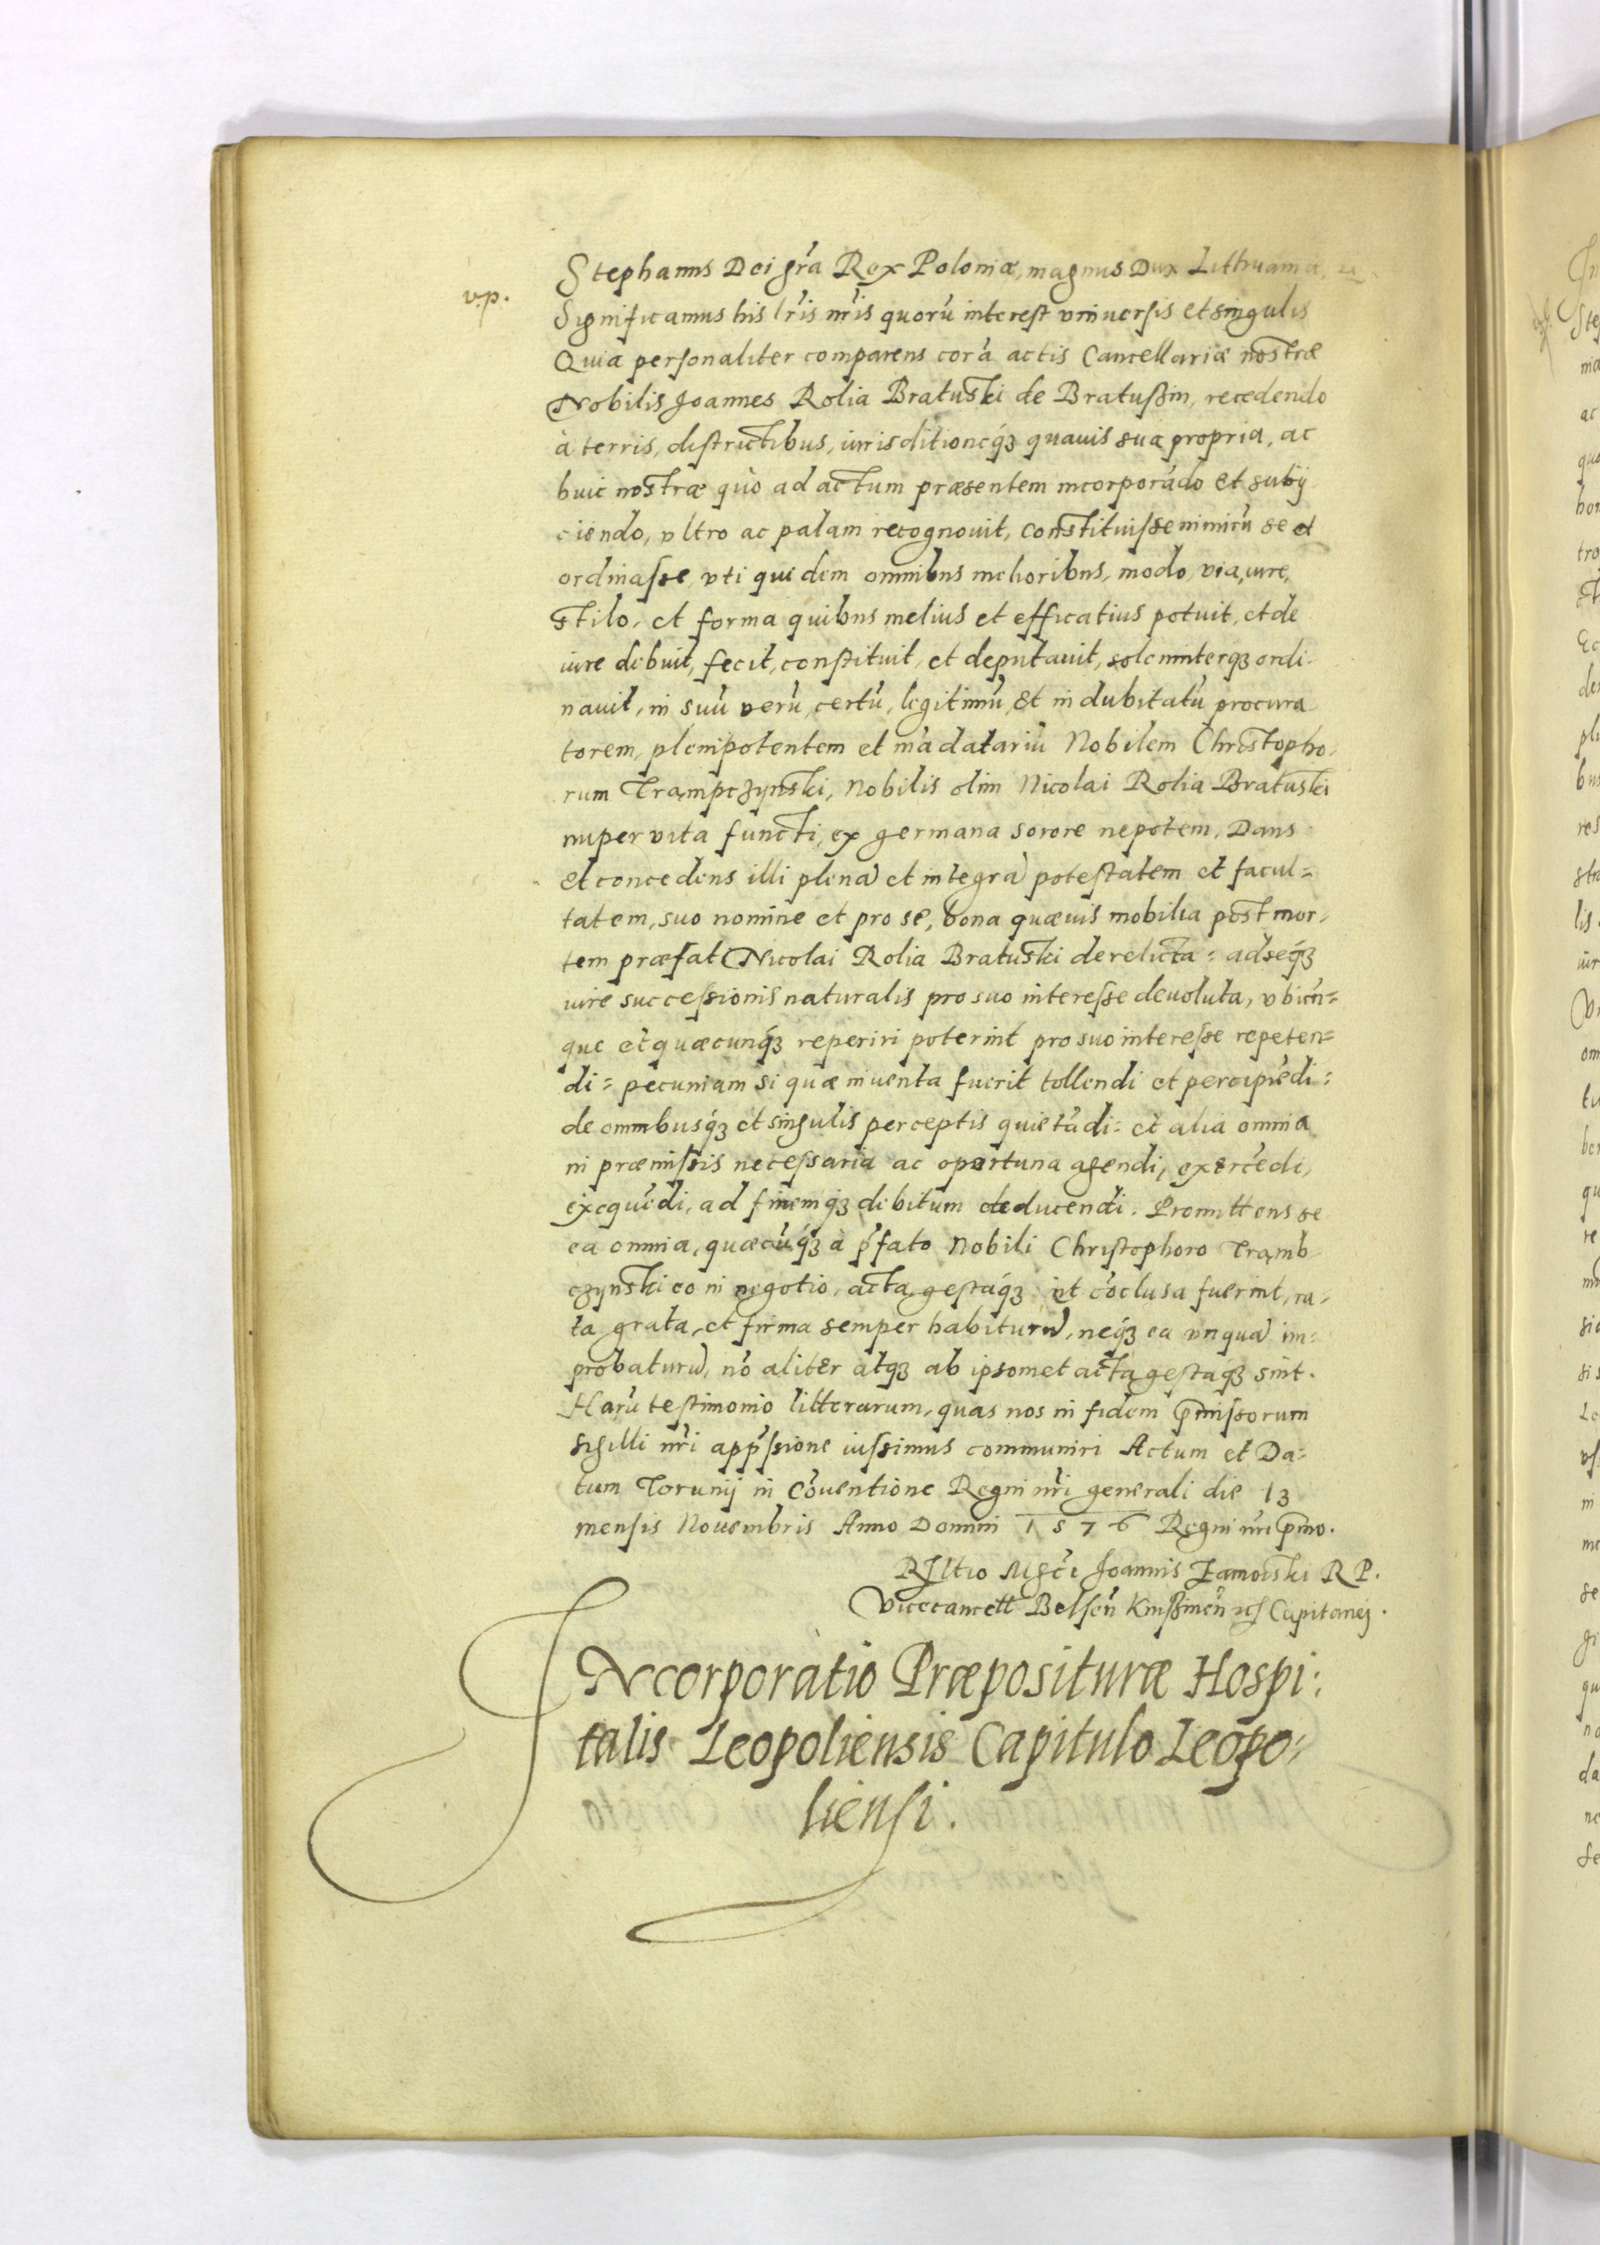 Stephanus Dei gr̃a Rex Poloniæ, magnus Dux Lithuaniæ,
v.p.
Significamus his lr̃is nr̃is quorũ interest vniuersis et singulis
Quia personaliter comparens corã actis Cancellariæ nostræ
Nobilis Joannes Rolia Bratuski de Bratußin, recedendo
à terris, districtibus, iurisditioneq́ȝ quauis sua propria, ac
huic nostræ quò ad actum præsentem incorporãdo et subij
ciendo, vltro ac palam recognouit, constituisse nimirũ se et
ordinasse, vti quidem omnibus melioribus, modo, via, iure,
stilo, et forma quibus melius et efficatius potuit, et de
iure debuit, fecit, constituit, et deputauit, solenniterqȝ ordi-
nauit, in suũ verũ, certũ, legitimũ, et indubitatũ procura
torem, plenipotentem et mãdatariũ Nobilem Christopho-
rum Trampczynski, Nobilis olim Nicolai Rolia Bratuski
nuper vita functi, ex germana sorore nepotem, Dans
et concedens illi plenã et integrã potestatem et facul=
tatem, suo nomine et pro se, bona quæuis mobilia post mor-
tem præfati Nicolai Rolia Bratuski derelicta= ad seq́ȝ
iure successionis naturalis pro suo interesse deuoluta, vbicũ=
que et quæcunq́ȝ reperiri poterint pro suo interesse repeten=
di= pecuniam si quæ inuenta fuerit tollendi et percipiẽdi=
de omnibusq́ȝ et singulis perceptis quietãdi= et alia omnia
in præmissis necessaria ac oportuna agendi, exercẽdi,
exequẽdi, ad finemq́ȝ debitum deducendi. Promittens se
ea omnia, quæcũq́ȝ à p̃fato Nobili Christophoro Tramb
czynski eo in negotio, acta, gestaq́ȝ et cõclusa fuerint, ra-
ta, grata, et firma semper habiturũ, neq́ȝ ea vnquã im=
probaturũ, nõ aliter atqȝ ab ipsomet acta, gestaq́ȝ sint.
Harũ testimonio litterarum, quas nos in fidem p̃missorum
sigilli nr̃i app̃ssione iussimus communiri Actum et Da=
tum Torunij in Cõuentione Regni nr̃i generali die 13
mensis Nouembris Anno Domini 1576 Regni nr̃i p̃mo.
Rĩltio Mgc̃i Joannis Zamoiski R P.
Vicecancell Belseñ Knißineñ Capitanej.
INcorporatio Præposituræ Hospi:
talis Leopoliensis Capitulo Leopo-
liensi.